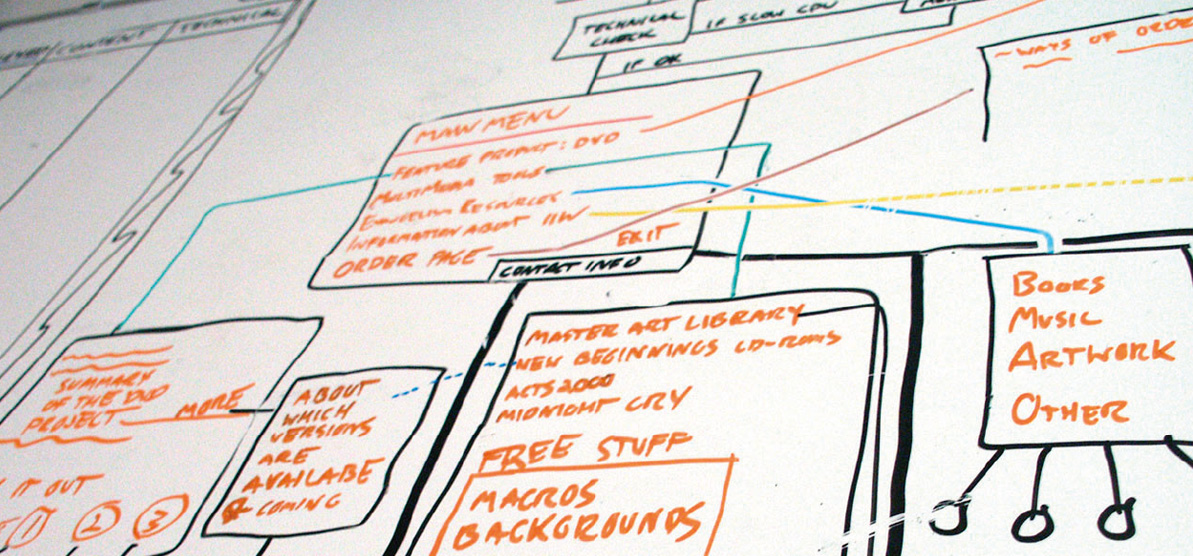 CONTENT
TECHNICAL
TECHNICAL
CHECK
IF SLOW CPU
IF OK
~WAYS OF ORDE
MAIN MENU
FEATURE PRODUCT: DVD
MULTIMEDIA TOOLS
EVANGELISM RESOURCES
INFORMATION ABOUT IIW
ORDER PAGE
EXIT
CONTACT INFO
SUMMARY
OF THE DVD
PROJECT
MORE
IT OUT
1 2 3
ABOUT
WHICH
VERSIONS
ARE
AVAILABE
COMING
MASTER ART LIBRARY
NEW BEGINNINGS CD-ROMS
ACTS 2000
MIDNIGHT CRY
FREE STUFF
MACROS
BACKGROUNDS
BOOKS
MUSIC
ARTWORK
OTHER